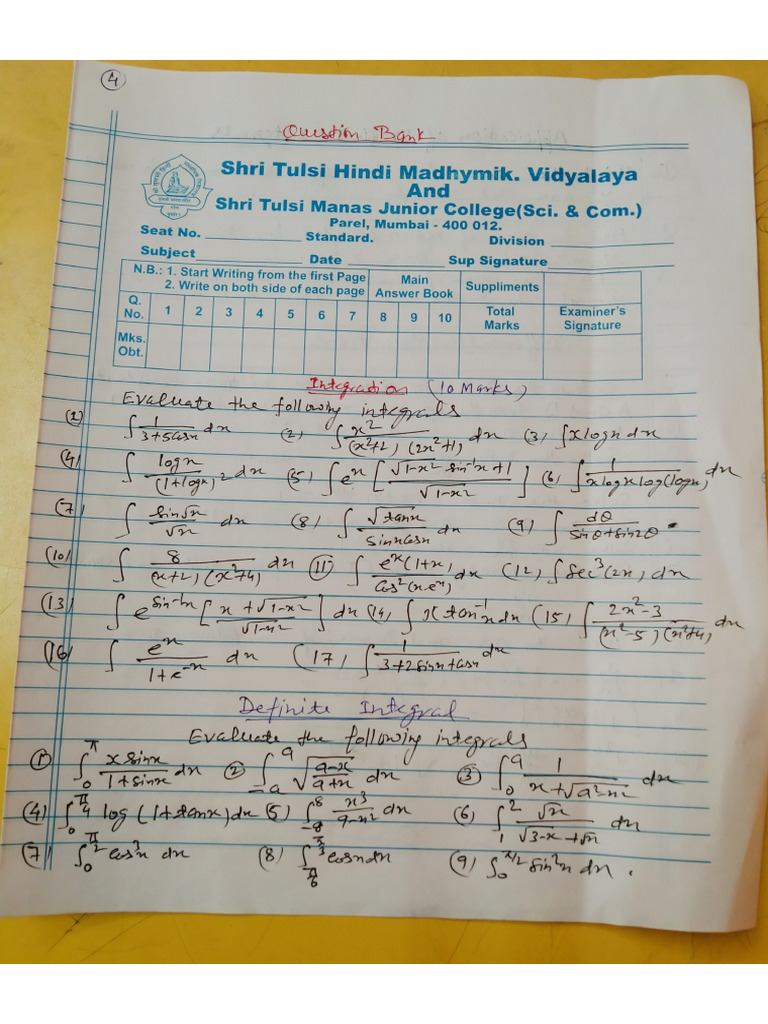 4
Question Bank
Shri Tulsi Hindi Madhymik. Vidyalaya
And
Shri Tulsi Manas Junior College(Sci. & Com.)
Parel, Mumbai - 400 012.
Seat No. Standard. Division
Subject Date Sup Signature
N.B.: 1. Start Writing from the first Page Main Suppliments
2. Write on both side of each page Answer Book
Q. No. 1 2 3 4 5 6 7 8 9 10 Total Marks Examiner's Signature
Mks. Obt.
Integration (10 Marks)
Evaluate the following integrals
(1) ∫ 1/(3+5cosx) dx (2) ∫ x²/((x²+2)(2x²+1)) dx (3) ∫x logx dx
(4) ∫ logx/(1+logx)² dx (5) ∫e^x [(√(1-x²) sin⁻¹x+1)/√(1-x²)] (6) ∫ 1/(x logx log(logx)) dx
(7) ∫ sin√x/√x dx (8) ∫ √tanx/(sinx cosx) dx (9) ∫ dθ/(sinθ+sin2θ)
(10) ∫ 8/((x+2)(x²+4)) dx (11) ∫ e^x(1+x)/cos²(x.e^x) dx (12) ∫sec³(2x) dx
(13) ∫ e^(sin⁻¹x) [(x+√(1-x²))/√(1-x²)] dx (14) ∫ x tan⁻¹x dx (15) ∫ (2x²-3)/((x²-5)(x²+4)) dx
(16) ∫ e^x/(1+e^-x) dx (17) ∫ 1/(3+2sinx+cosx) dx
Definite Integral
Evaluate the following integrals
(1) ∫₀^π x sinx/(1+sinx) dx (2) ∫₋ₐ^a √((a-x)/(a+x)) dx (3) ∫₀^a 1/(x+√(a²-x²)) dx
(4) ∫₀^(π/4) log(1+tanx)dx (5) ∫₋₈^8 x³/(9-x²) dx (6) ∫₁^2 √x/(√(3-x)+√x) dx
(7) ∫₀^(π/2) cos³x dx (8) ∫_(π/6)^(π/3) cosx dx (9) ∫₀^(π/2) sin²x dx.